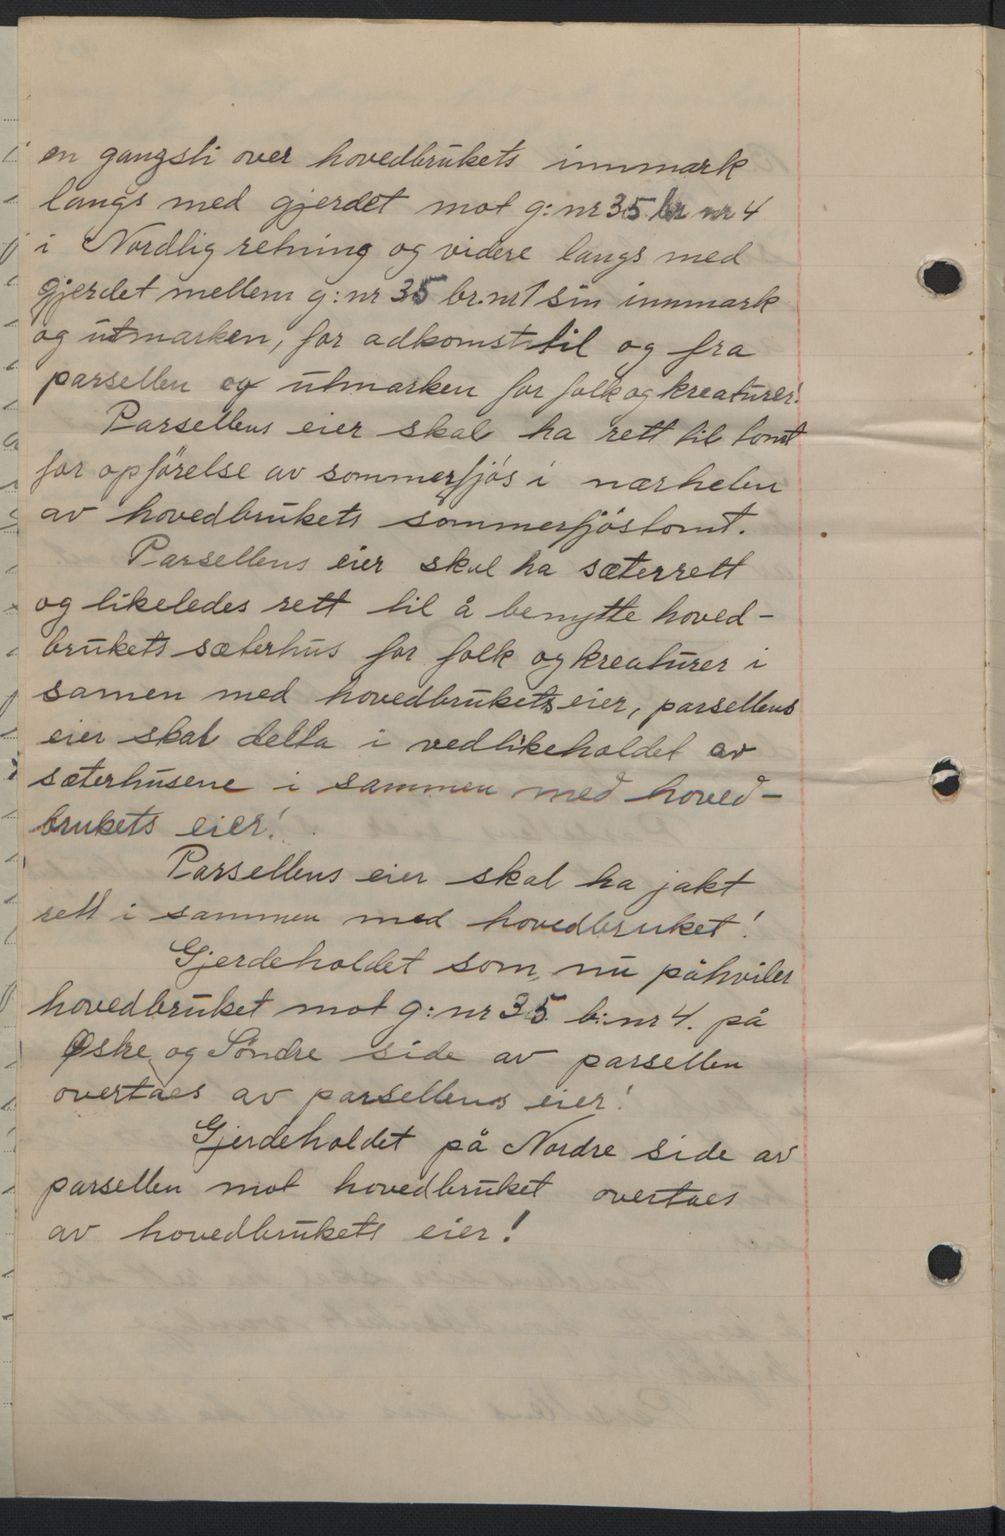 en gangsti over hovedbrukets innmark
langs med gjerdet mot g:nr 35 br nr 4
i Nordlig retning og videre langs med
gjerdet mellem g:nr 35 br.nr 1 sin innmark
og utmarken, for adkomst til og fra
parsellen og utmarken for folk og kreaturer!
Parsellens eier skal ha rett til tomt
for opførelse av sommerfjøs i nærheten
av hovedbrukets sommerfjøstomt.
Parsellens eier skal ha sæterrett
og likeledes rett til å benytte hoved-
brukets sæterhus for folk og kreaturer i
samen med hovedbrukets eier, parsellens
eier skal delta i vedlikeholdet av
sæterhusene i sammen med hoved-
brukets eier!
Parsellens eier skal ha jakt
rett i sammen med hovedbruket!
Gjerdeholdet som nu påhviler
hovedbruket mot g:nr 35 b:nr 4. på
Østre og Søndre side av parsellen
overtaes av parsellens eier!
Gjerdeholdet på Nordre side av
parsellen mot hovedbruket overtaes
av hovedbrukets eier!